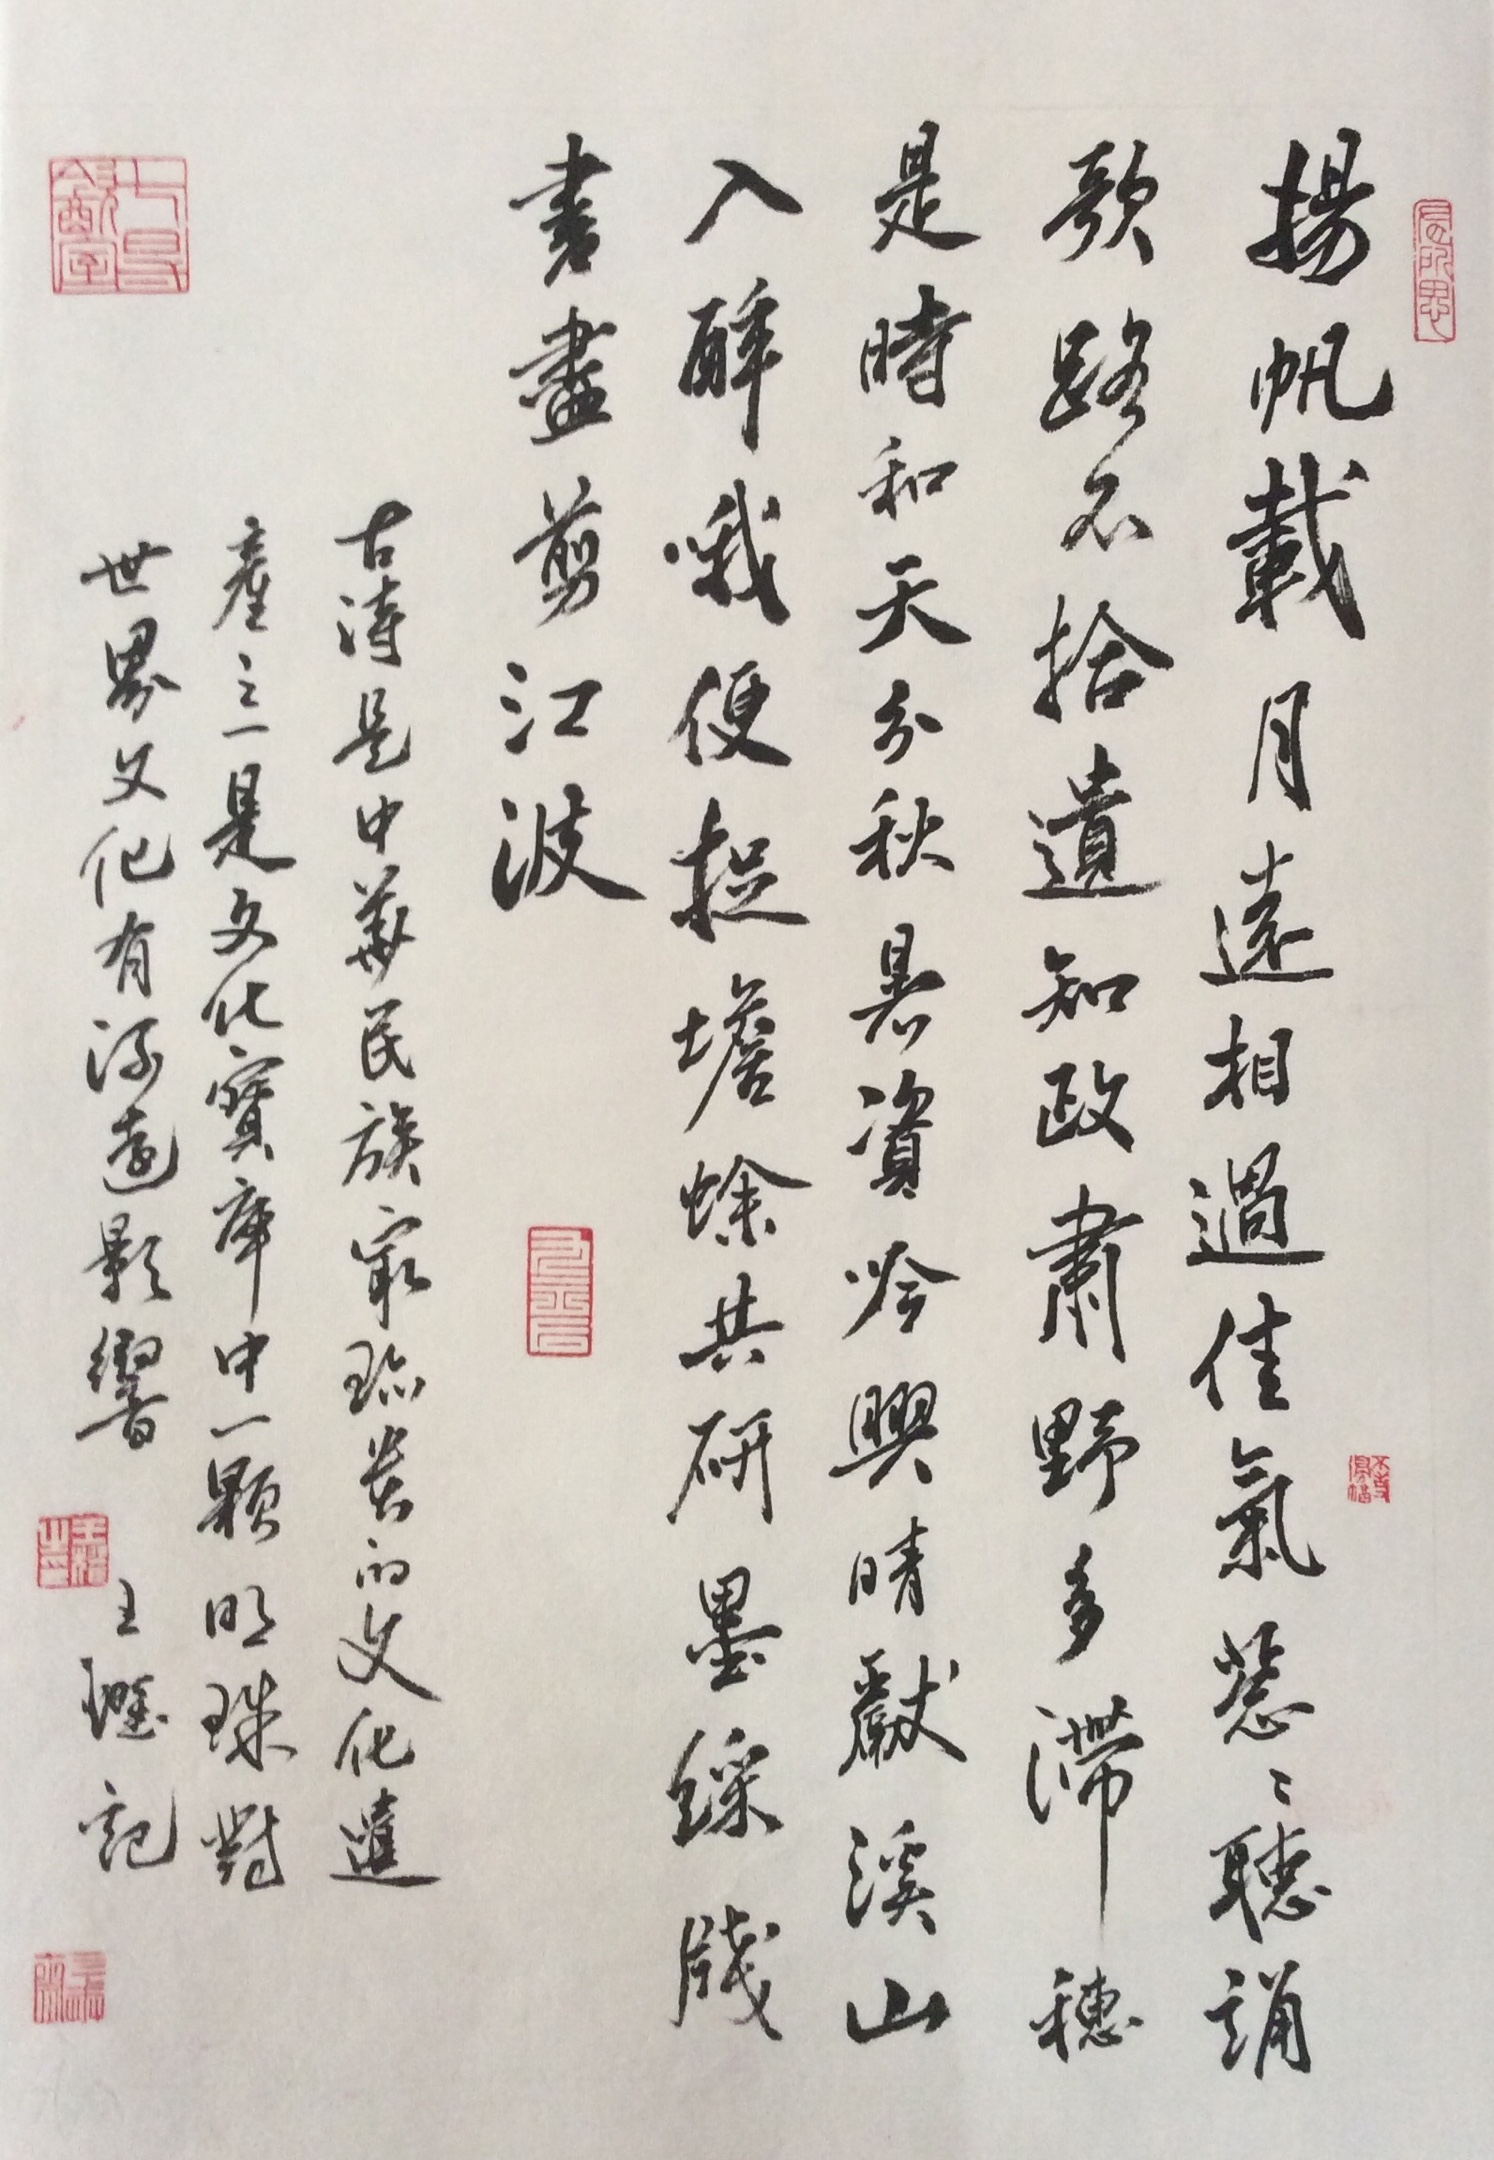 揚帆載月遠相過佳氣蔥〻聽誦
歌路不拾遺知政肅野多滯穗
是時和天分秋暑資吟興晴獻溪山
入醉哦便捉蟾蜍共研墨綵牋
書盡剪江波
古詩是中華民族最珍贵的文化遺
產之一是文化寶库中一顆明珠對
世界文化有深遠影響
王 記